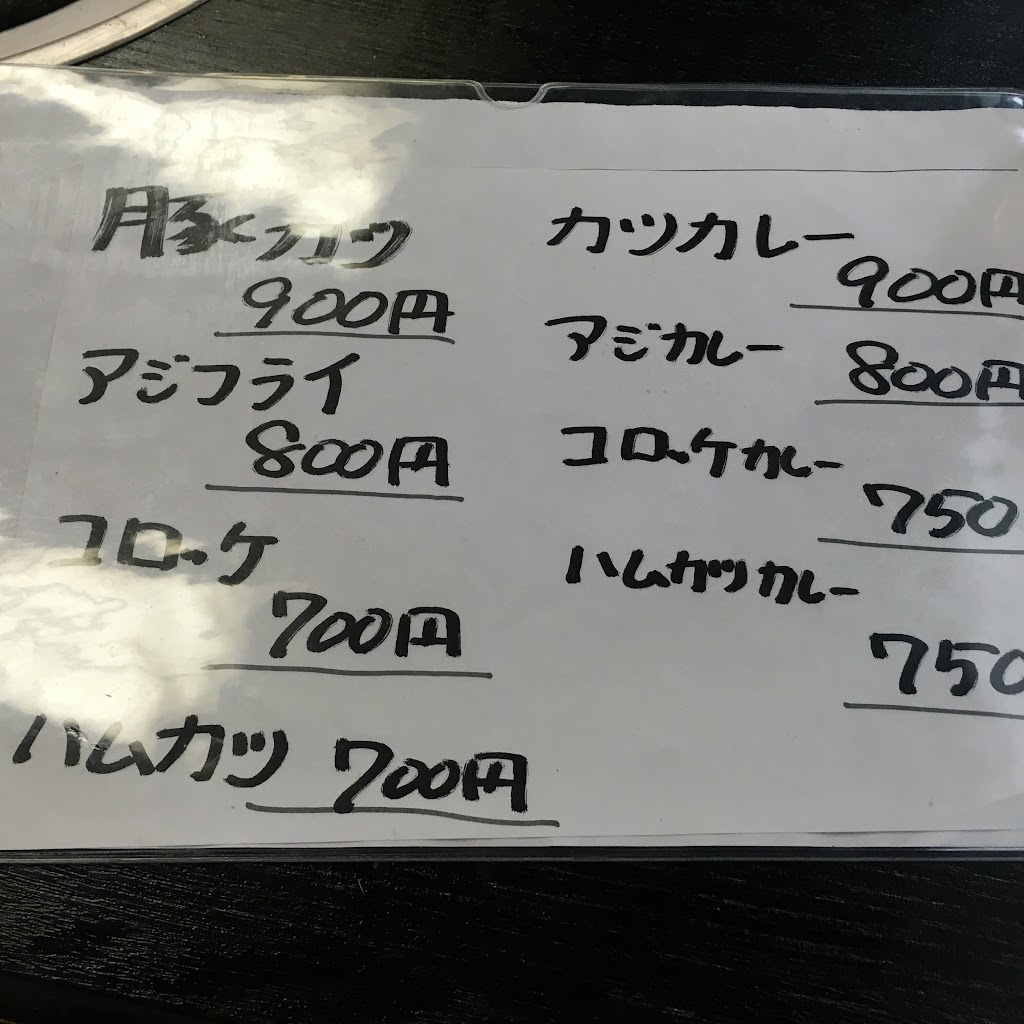 豚カツ
900円
アジフライ
800円
コロッケ
700円
ハムカツ 700円
カツカレー
900円
アジカレー
800円
コロッケカレー
750
ハムカツカレー
750